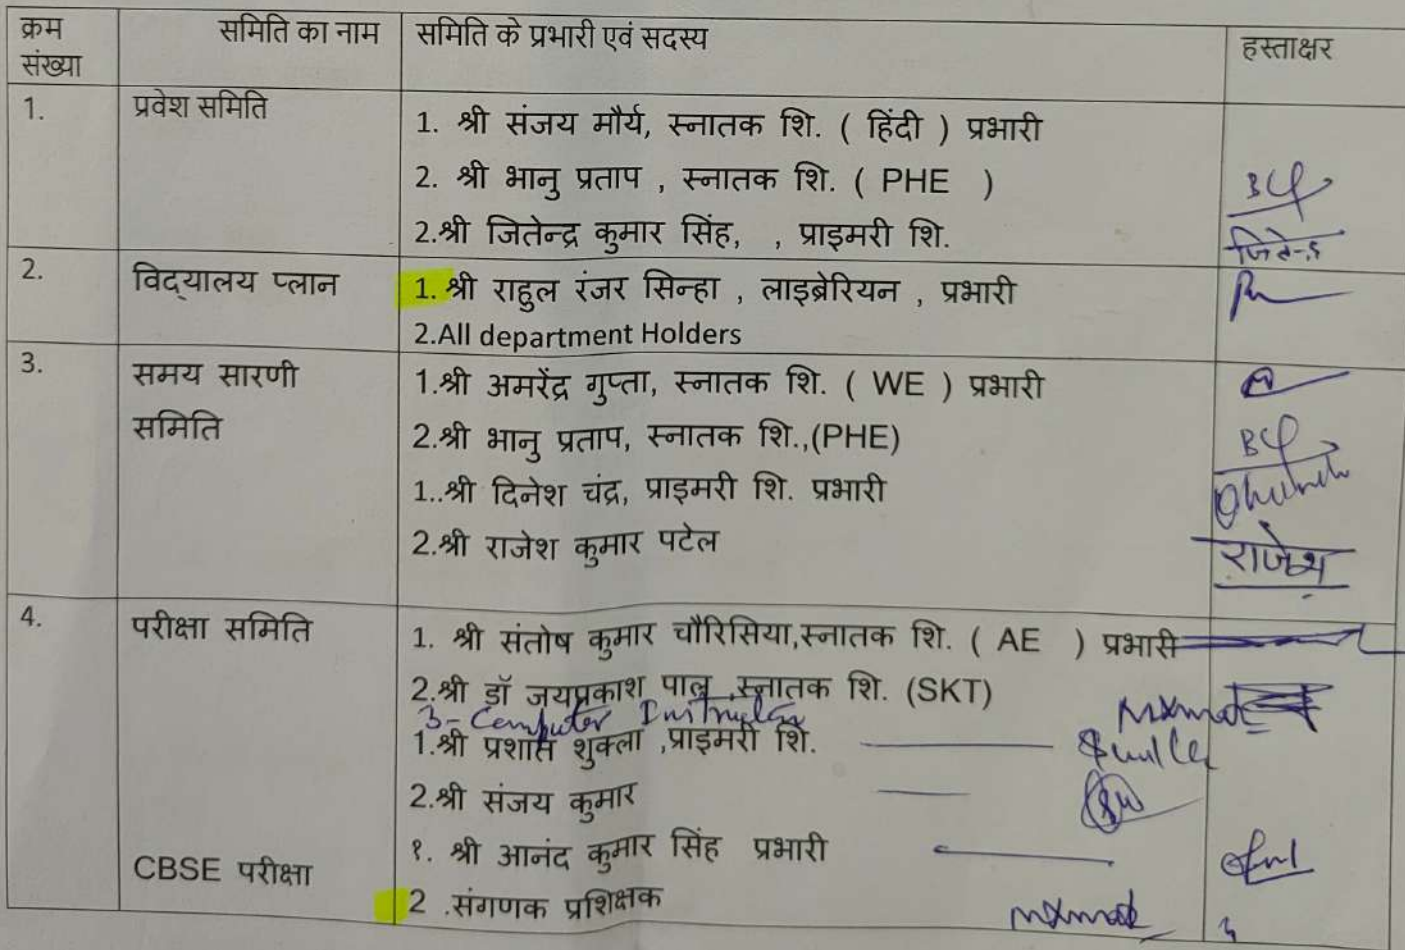 क्रम संख्या समिति का नाम समिति के प्रभारी एवं सदस्य हस्ताक्षर
1. प्रवेश समिति
1. श्री संजय मौर्य, स्नातक शि. ( हिंदी ) प्रभारी
2. श्री भानु प्रताप , स्नातक शि. ( PHE )
2.श्री जितेन्द्र कुमार सिंह, , प्राइमरी शि.
2. विद्यालय प्लान
1. श्री राहुल रंजर सिन्हा , लाइब्रेरियन , प्रभारी
2.All department Holders
3. समय सारणी
समिति
1.श्री अमरेंद्र गुप्ता, स्नातक शि. ( WE ) प्रभारी
2.श्री भानु प्रताप, स्नातक शि.,(PHE)
1..श्री दिनेश चंद्र, प्राइमरी शि. प्रभारी
2.श्री राजेश कुमार पटेल राजेश
4. परीक्षा समिति
1. श्री संतोष कुमार चौरिसिया,स्नातक शि. ( AE ) प्रभारी
2.श्री डॉ जयप्रकाश पाल ,स्नातक शि. (SKT)
3- Computer Instructor
1.श्री प्रशांत शुक्ला ,प्राइमरी शि.
2.श्री संजय कुमार
CBSE परीक्षा
१. श्री आनंद कुमार सिंह प्रभारी
2 .संगणक प्रशिक्षक